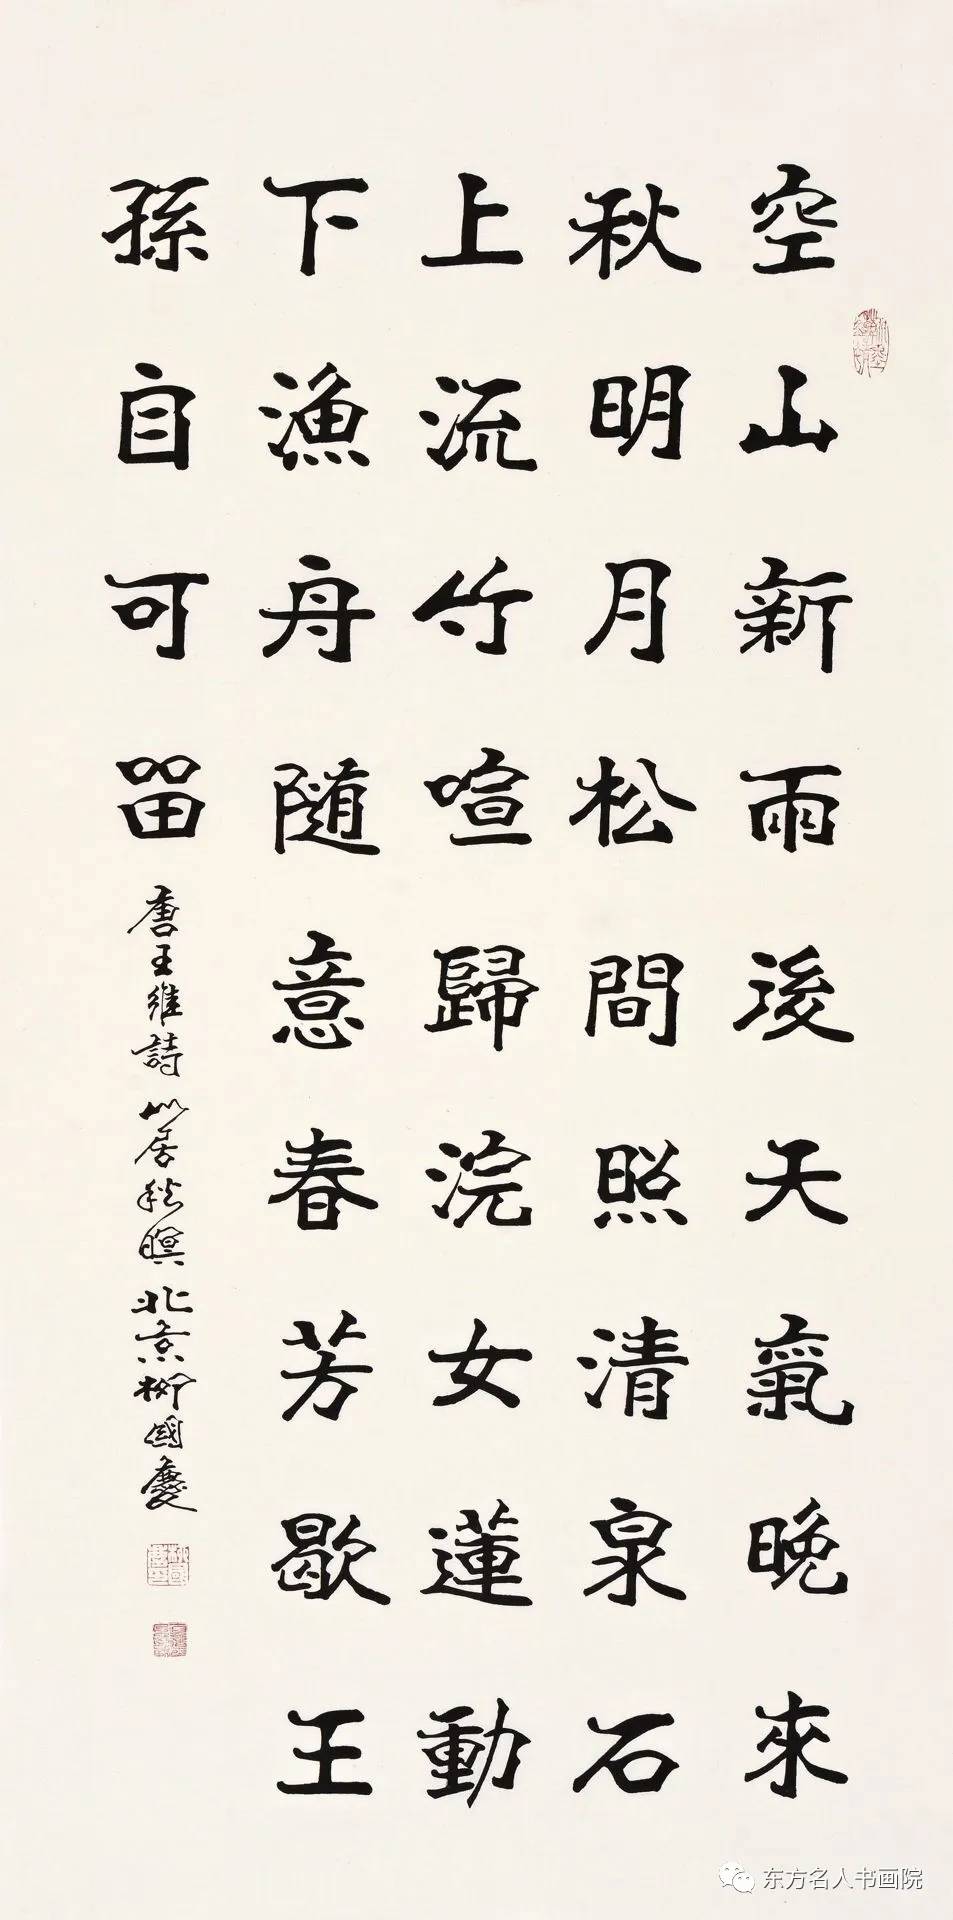 空山新雨後天氣晚來
秋明月松間照清泉石
上流竹喧歸浣女蓮動
下漁舟随意春芳歇王
孫自可留
唐王維詩山居秋暝北京柳國慶
东方名人书画院